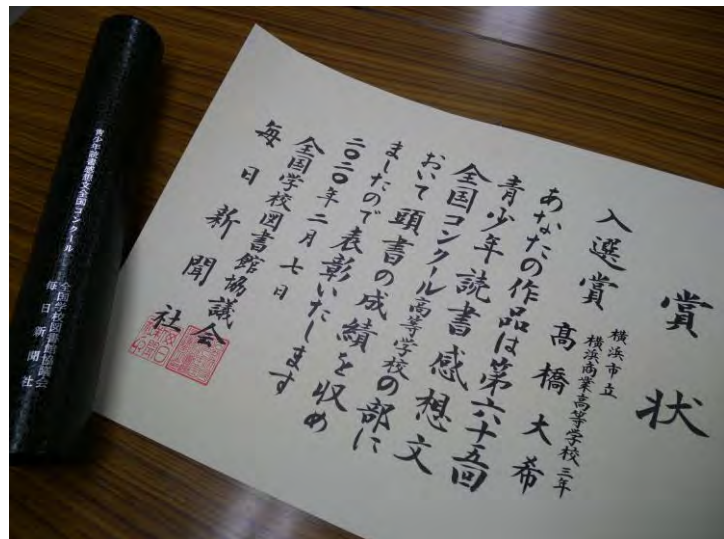 賞状
横浜市立
横浜商業高等学校三年
入選賞 髙橋大希
あなたの作品は第六十五回
青少年読書感想文
全国コンクール高等学校の部に
おいて頭書の成績を収め
ましたので表彰いたします
二〇二〇年二月七日
全国学校図書館協議会
毎日新聞社
青少年読書感想文全国コンクール
全国学校図書館協議会
毎日新聞社